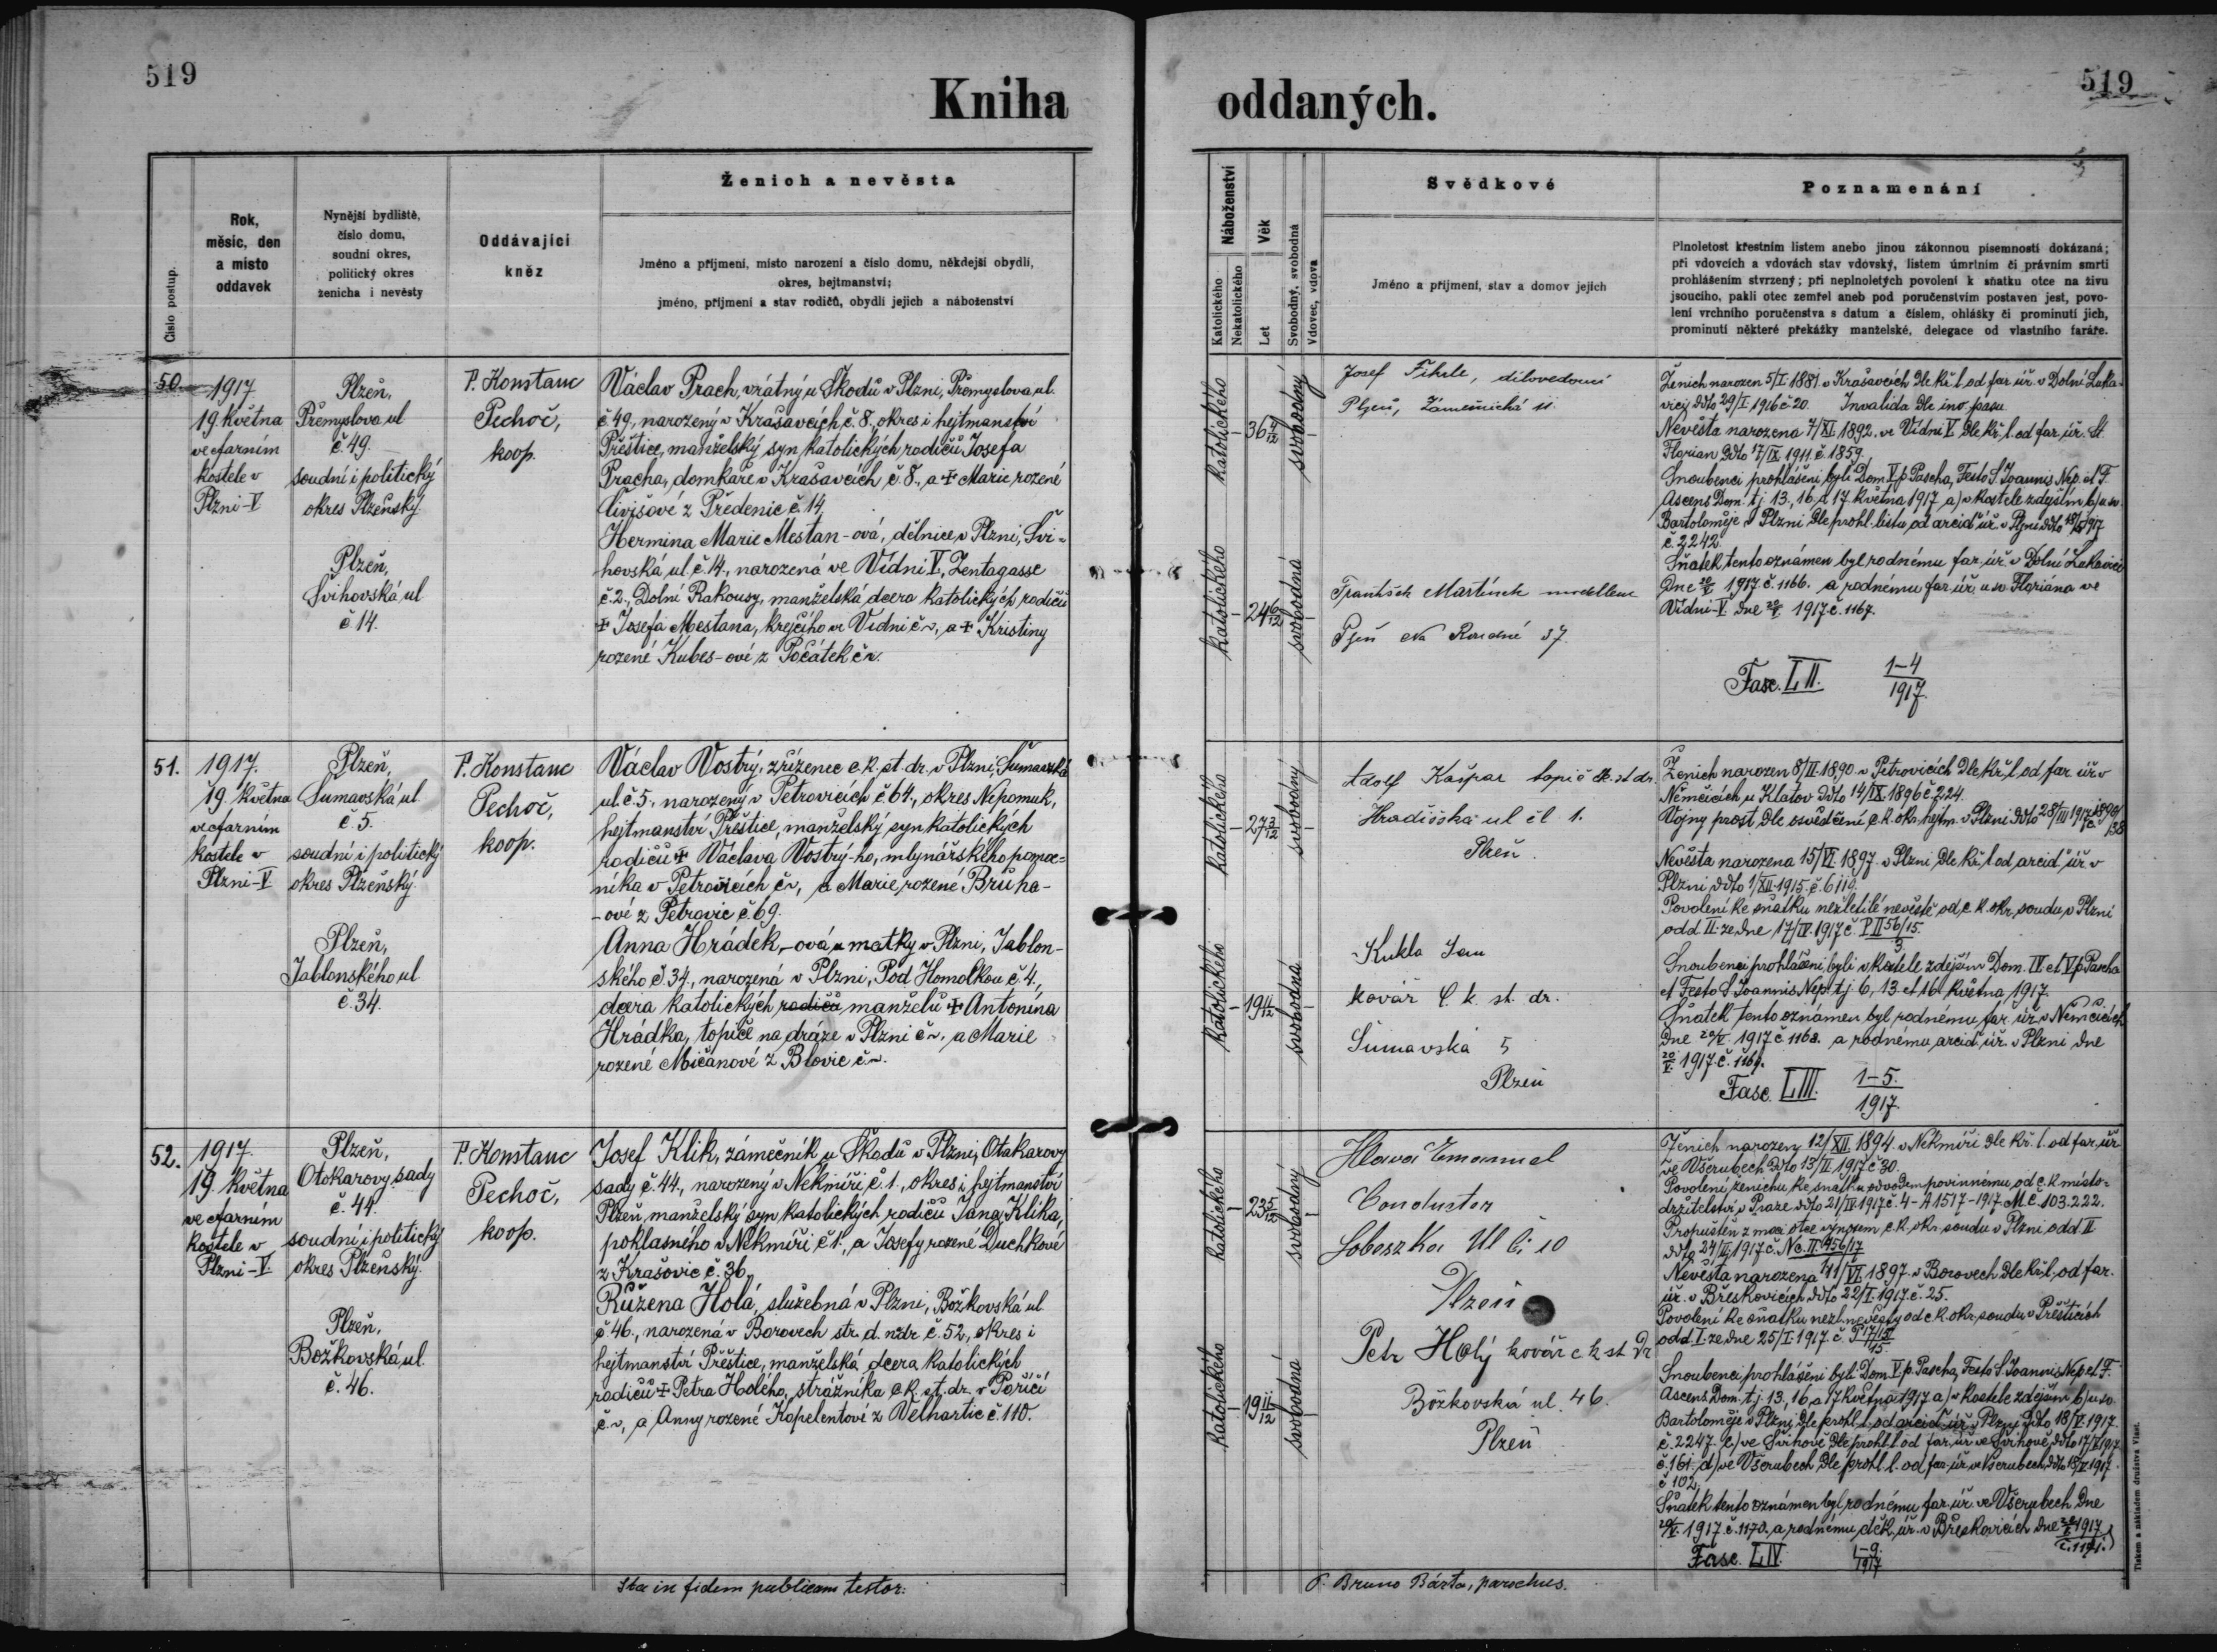 519
Kniha
Číslo postup.
Rok,
měsíc, den
a místo
oddavek
Nynější bydliště,
číslo domu,
soudní okres,
politický okres
ženicha i nevěsty
Oddávající
kněz
Ženich a nevěsta
Jméno a příjmení, místo narození a číslo domu, někdejší obydlí,
okres, hejtmanství;
jméno, příjmení a stav rodičů, obydlí jejich a náboženství
50.
1917
19. května
ve farním
kostele v
Plzni-V
Plzeň,
Přemyslova ul
č 49.
soudní i politický
okres Plzeňský.
Plzeň,
Švihovská ul
č 14.
P. Konstanc
Pechoč,
koop.
Václav Prach, vrátný u Škodů v Plzni, Přemyslova ul.
č 49., narozený v Krašavcích č. 8., okres i hejtmanství
Přeštice, manželský syn katolických rodičů Josefa
Pracha, domkaře v Krašavcích č 8., a + Marie rozené
Čivišové z Předenic č. 14.
Hermina Marie Mestan-ová, dělnice v Plzni, Švi-
hovská ul. č. 14., narozená ve Vídni V., Zentagasse
č. 2., Dolní Rakousy, manželská dcera katolických rodičů
+ Josefa Mestana, krejčího ve Vídni č~, a + Kristiny
rozené Kubes-ové z Počátek č~.
51.
1917.
19. května
ve farním
kostele v
Plzni-V
Plzeň,
Šumavská ul.
č. 5.
soudní i politický
okres Plzeňský.
Plzeň,
Jablonského ul
č. 34.
P. Konstanc
Pechoč,
koop.
Václav Vostrý, zřízenec c. k. st. dr. v Plzni, Šumavská
ul. č. 5., narozený v Petrovicích č 64., okres Nepomuk,
hejtmanství Přeštice, manželský syn katolických
rodičů + Václava Vostrý-ho, mlynářského pomoc=
níka v Petrovicích č~, a Marie rozené Brůha-
-ové z Petrovic č. 69.
Anna Hrádek-ová u matky v Plzni, Jablon-
ského č. 34., narozená v Plzni, Pod Homolkou č. 4.,
dcera katolických rodičů manželů + Antonína
Hrádka, topiče na dráze v Plzni č~, a Marie
rozené Mičanové z Blovic č~.
52.
1917.
19. května
ve farním
kostele v
Plzni-V.
Plzeň,
Otokarovy sady
č. 44.
soudní i politický
okres Plzeňský.
Plzeň,
Božkovská ul.
č. 46.
P. Konstanc
Pechoč,
koop.
Josef Klik, zámečník u Škodů v Plzni, Otakarovy
sady č. 44., narozený v Nekmíři č 1., okres i hejtmanství
Plzeň, manželský syn katolických rodičů Jana Klika,
poklasného v Nekmíři č 1., a Josefy rozené Duchkové
z Krašovic č. 36.
Růžena Holá, služebná v Plzni, Božkovská ul
č. 46., narozená v Borovech str. d. nádr. č. 52, okres i
hejtmanství Přeštice, manželská dcera katolických
rodičů + Petra Holého, strážníka c. k. st. dr. v Poříčí
č.~, a Anny rozené Kopelentové z Velhartic č. 110.
Ita in fidem publicam testor:
519
oddaných.
Náboženství
Katolického
Nekatolického
Věk
Let
Svobodný, svobodná
Vdovec, vdova
Svědkové
Jméno a příjmení, stav a domov jejich
Poznamenání
Plnoletost křestním listem anebo jinou zákonnou písemností dokázaná;
při vdovcích a vdovách stav vdovský, listem úmrtním či právním smrti
prohlášením stvrzený; při neplnoletých povolení k sňatku otce na živu
jsoucího, pakli otec zemřel aneb pod poručenstvím postaven jest, povo-
lení vrchního poručenstva s datum a číslem, ohlášky či prominutí jich,
prominutí některé překážky manželské, delegace od vlastního faráře.
katolického
36 4/12
svobodný
Josef Fihrle, dílovedoucí
Plzeň, Zámečnická 11
katolického
24 6/12
svobodná
František Martínek
Plzeň Na Roudné 37.
Ženich narozen 5/I. 1881. v Krašavcích dle kř. l. od far. úř. v Dolní Luka-
vici ddto 29/I 1916 č. 20. Invalida dle inv. pasu.
Nevěsta narozena 7/XI. 1892. ve Vídni V. dle kř. l. od far. úř. St.
Florian ddto 17/IX. 1911. č. 1859.
Snoubenci prohlášeni byli Dom. V. p. Pascha, Festo S. Joannis Nep. et F.
Ascens. Dom. tj. 13., 16. a 17. května 1917 a) v kostele zdejším b) u sv.
Bartoloměje v Plzni dle prohl. listu od arcid. úř. v Plzni ddto 18/V 1917
č. 2242.
Sňatek tento oznámen byl rodnému far. úř. v Dolní Lukavici
dne 20/V. 1917 č. 1166. a rodnému far. úř. u sv. Floriána ve
Vídni-V. dne 20/V. 1917 č. 1167.
Fasc. LII. 1-4/1917.
katolického
27 3/12
svobodný
Adolf Kašpar topič ck. st dr.
Hradišská ul čl 1.
Plzeň.
katolického
19 11/12
svobodná
Kukla Jan
kovář C. k. st. dr.
Šumavská 5
Plzeň
Ženich narozen 8/II. 1890. v Petrovicích dle kř. l. od far. úř. v
Němčicích u Klatov ddto 14/IX. 1896 č. 224.
Vojny prost dle osvědčení c. k. okr. hejtm. v Plzni ddto 28/III 1917 č. 1890/38
Nevěsta narozena 15/VI. 1897. v Plzni dle kř. l. od arcid. úř. v
Plzni ddto 1/XII. 1915. č. 6119.
Povolení ke sňatku nezletilé nevěstě od c. k. okr. soudu v Plzni
odd II. ze dne 17/IV. 1917 č. P II 56/15 / 3.
Snoubenci prohlášeni byli v kostele zdejším Dom. IV et V p. Pascha
et Festo S Joannis Nep. tj. 6, 13 et 16. května 1917.
Sňatek tento oznámen byl rodnému far. úř. v Němčicích
dne 20/V. 1917 č. 1168. a rodnému arcid. úř. v Plzni dne
20/V. 1917. č. 1169.
Fasc. LIII. 1-5./1917.
katolického
23 5/12
svobodný
Hlaváč Emanuel
Conductor
Loboszka Ul či 10
Plzeň
katolického
19 11/12
svobodná
Petr Holý kovář c k st Dr
Božkovská ul. 46.
Plzeň
Ženich narozený 12/XII. 1894. v Nekmíři dle kř. l. od far. úř.
ve Všerubech ddto 13/II. 1917 č. 30.
Povolení ženichu ke sňatku odvodem povinnému od c. k. místo=
držitelství v Praze ddto 21/IV. 1917 č. 4-A 1517-1917 M. č. 103.222.
Propuštěn z moci otce výnosem c. k. okr. soudu v Plzni odd II
ddto 24/II. 1917 č. Nc. II. 456/17
Nevěsta narozena 11/VI. 1897. v Borovech dle kř. l. od far.
úř. v Břeskovicích ddto 22/I. 1917. č. 25.
Povolení ke sňatku nezl. nevěsty od c. k. okr. soudu v Přešticích
odd I. ze dne 25/I. 1917. č. P 17/15 / 15.
Snoubenci prohlášeni byli Dom. V p. Pascha, Festo S. Joannis Nep. et F.
Ascens. Dom. t. j. 13., 16. a 17. května 1917 a) v kostele zdejším b) u sv.
Bartoloměje v Plzni dle prohl. l. od arcid. úř. v Plzni ddto 18/V. 1917.
č. 2247. c) ve Švihově dle prohl. l. od far. úř. ve Švihově ddto 17/V. 1917
č. 161. d) ve Všerubech dle prohl. l. od far. úř. ve Všerubech ddto 18/V. 1917.
č. 102.
Sňatek tento oznámen byl rodnému far. úř. ve Všerubech dne
20/V. 1917. č. 1170. a rodnému děk. úř. v Břeskovicích dne 20/V. 1917
č. 1171.
Fasc. LIV. 1-9./1917
P. Bruno Bárta, parochus.
Tiskem a nákladem družstva Vlast.